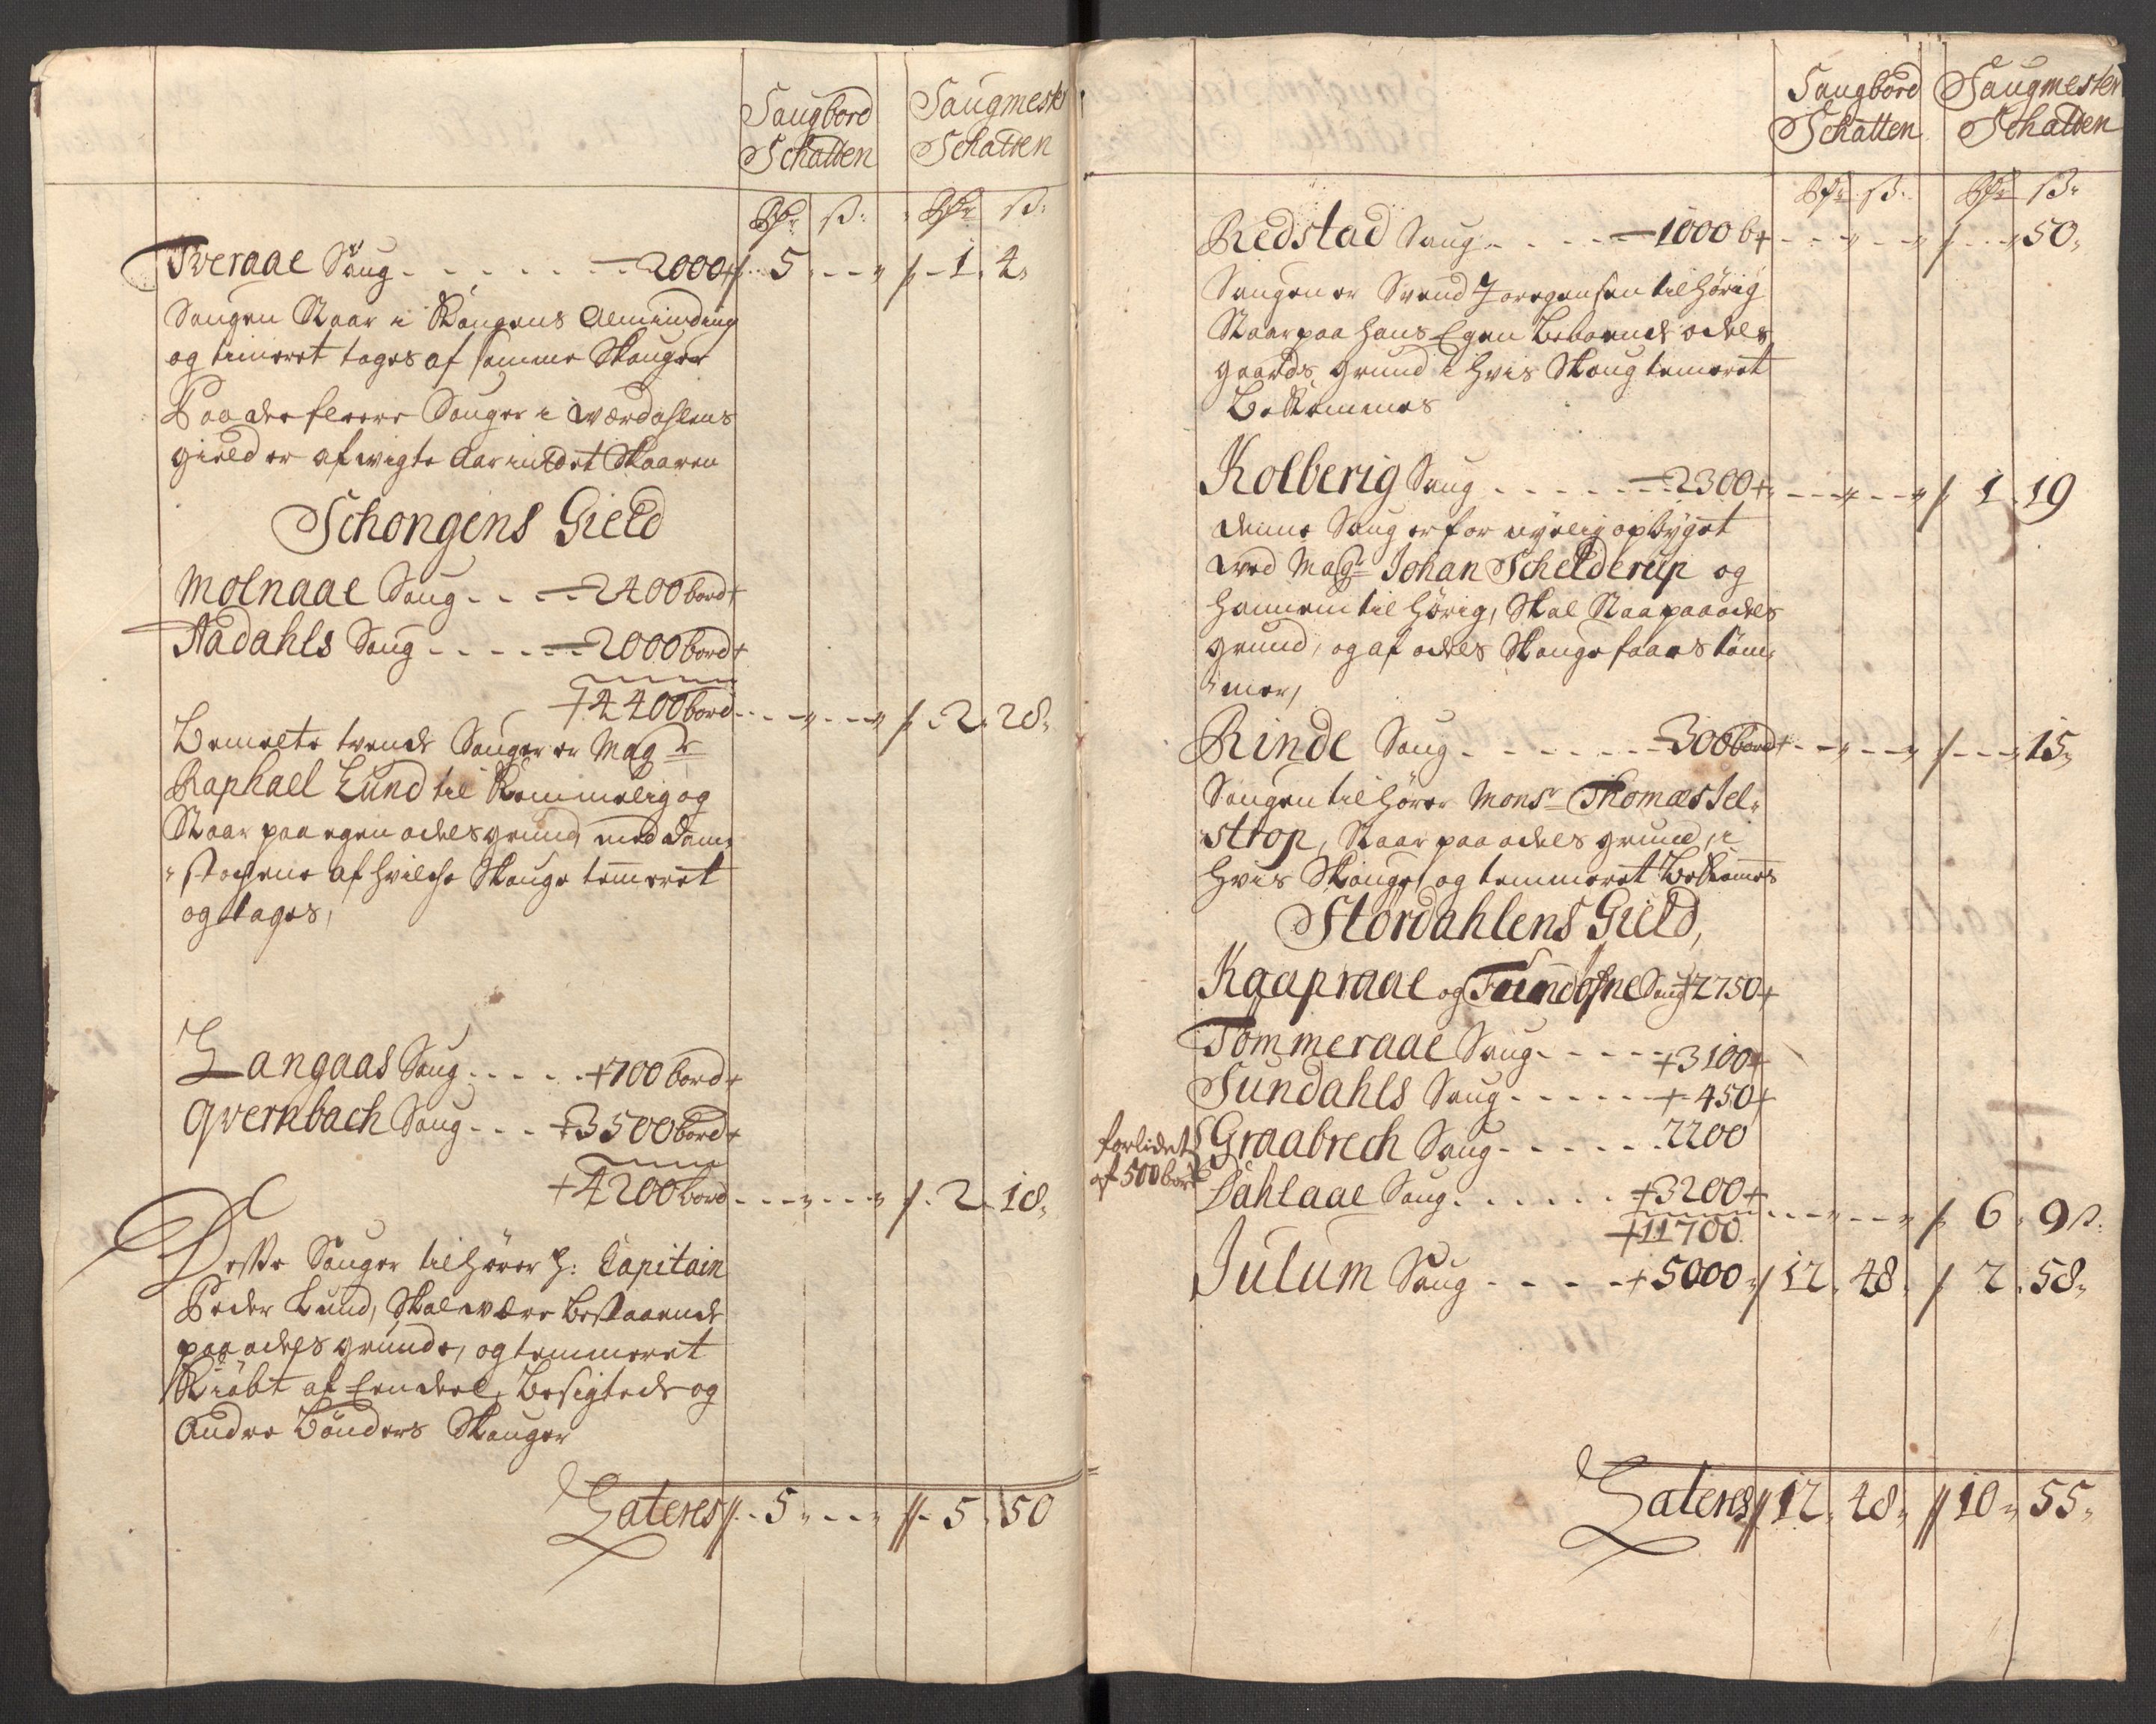 Saugbord
Schatten
Saugmester
Schatten
Rdr ß: Rdr ß:
Tveraae Saug - - - - - - 2000+ /. 5 " - - " /- 1. 4"
Saugen Staar i Kongens Alminding
og timeret tages af samme Skouger
Paa de fleere Sauger i Werdahlens
gield er afwigte Aar intet Skaaren
Schongens Gield
Molnaae Saug - - - - 2400 bord+
Aadahls Saug - - - - - 2000 bord+
+4400 bord - - - " - - - " /. 2. 28"
Bemelte tvende Sauger er Magr
Raphael Lund til Kommelig og
Staar paa egen odels grund med Dam-
"stochene af hvilche Skouge tømeret
og tages,
Langaas Saug - - - - +700 bord+
Qvernbach Saug - - - +3500 bord+
+4200 bord - - - " - - - " /. 2. 18"
Disse Sauger tilhører H: Capitain
Peder Lund, Skal være bestaaende
paa odels grunde, og temmeret
Kiøbt af Eendeel Besigtede og
Andre Bønders Skouger
Lateres //. 5 " - - " //- 5. 50
Saugbord
Schatten
Saugmester
Schatten
Rdr ß: Rdr ß:
Redstad Saug - - - - 1000 b+ - - - " - - " / - - " 50"
Saugen er Svend Joregensen tilhørig
Staar paa hans Egen Beboende odels
gaards grund i hvis Skoug temeret
Bekommes
Kolberig Saug - - - - - - 2300+ - - - " - - " / 1. 19
denne Saug er for nyelig opbyget
wed Magr Johan Schelderup og
hannem tilhørig, Skal Staa paa odels
grund, og af odels Skouge faaes tøm-
"mer,
Rinde Saug - - - - - - 300 bord+ - - " - - " / - - - " 15"
Saugen tilhører Monsr Thomas Jel-
strop, Staar paa odels grund, i
hvis Skouge og temmeret Bekommes
Størdahlens Gield,
Kaapraae og Fundofne Saug +2750+
Tømmeraae Saug - - - - +3100+
Sundahls Saug - - - - - +450+
forlidet
af 500 bord
Graabrech Saug - - - - - 2200
Dahlaae Saug - - - - - +3200+
+11700 - - - " - - " / 6. 9 ß.
Julum Saug - - - - +5000" / 12. 48. / 2. 58"
Lateres // 12. 48" // 10" 55"